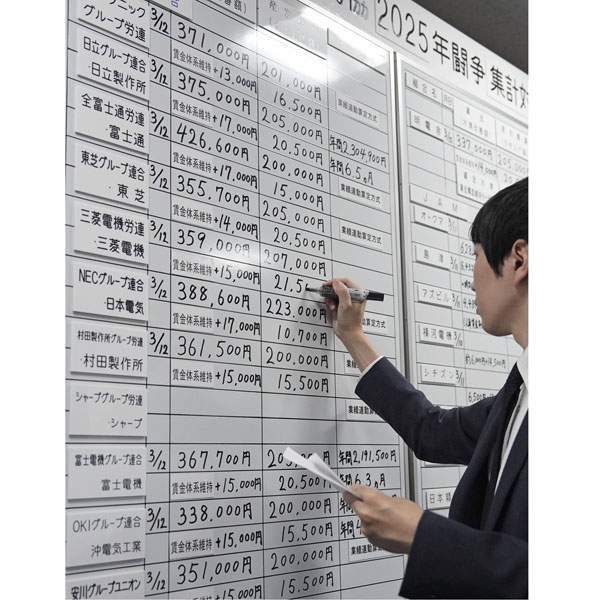 2025年闘争 集計対
ニック
グループ労連
3/12
371,000円
201,000円
賃金体系維持+13,000円
16,500円
業績連動算定方式
日立グループ連合
・日立製作所
3/12
375,000円
205,000円
賃金体系維持+17,000円
20,500円
年間2,304,900円
全富士通労連
・富士通
3/12
426,600円
年間6.5ヵ月
賃金体系維持+17,000円
15,000円
業績連動算定方式
東芝グループ連合
・東芝
3/12
355,700円
205,000円
賃金体系維持+14,000円
20,500円
業績連動算定方式
三菱電機労連
・三菱電機
3/12
359,000円
207,000円
賃金体系維持+15,000円
21,5
NECグループ連合
・日本電気
3/12
388,600円
223,000円
賃金体系維持+17,000円
10,700円
算定方式
村田製作所グループ労連
・村田製作所
3/12
361,500円
200,000円
賃金体系維持+15,000円
15,500円
業績連動算定方式
シャープグループ労連
・シャープ
業績連動算定方式
富士電機グループ連合
富士電機
3/12
367,700円
年間2,191,500円
賃金体系維持+15,000円
20,500円
年間6.3ヵ月
OKIグループ連合
沖電気工業
3/12
338,000円
200,000円
年間
賃金体系維持+15,000円
15,500円
業績連動算定方式
安川グループユニオン
3/12
351,000円
200,000円
賃金体系維持+15,000円
15,500円
組合名
明電舎
337,000円
JAM
オークマ
島津
アズビル
横河電機
シチズン
6,500
日本精